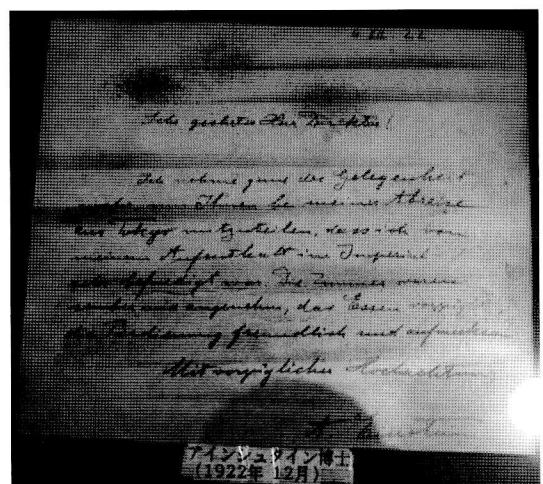 Sehr geehrter Herr Direktor!
Ich nehme gern die Gelegenheit
Ihnen bei meiner Abreise
aus Tokyo mitzuteilen, dass ich von
meinem Aufenthalt im Imperial
sehr befriedigt war. Die Zimmer waren
angenehm, das Essen vorzüglich,
die Bedienung freundlich und aufmerksam
Mit vorzüglicher Hochachtung
A. Einstein
アインシュタイン博士
(1922年 12月)